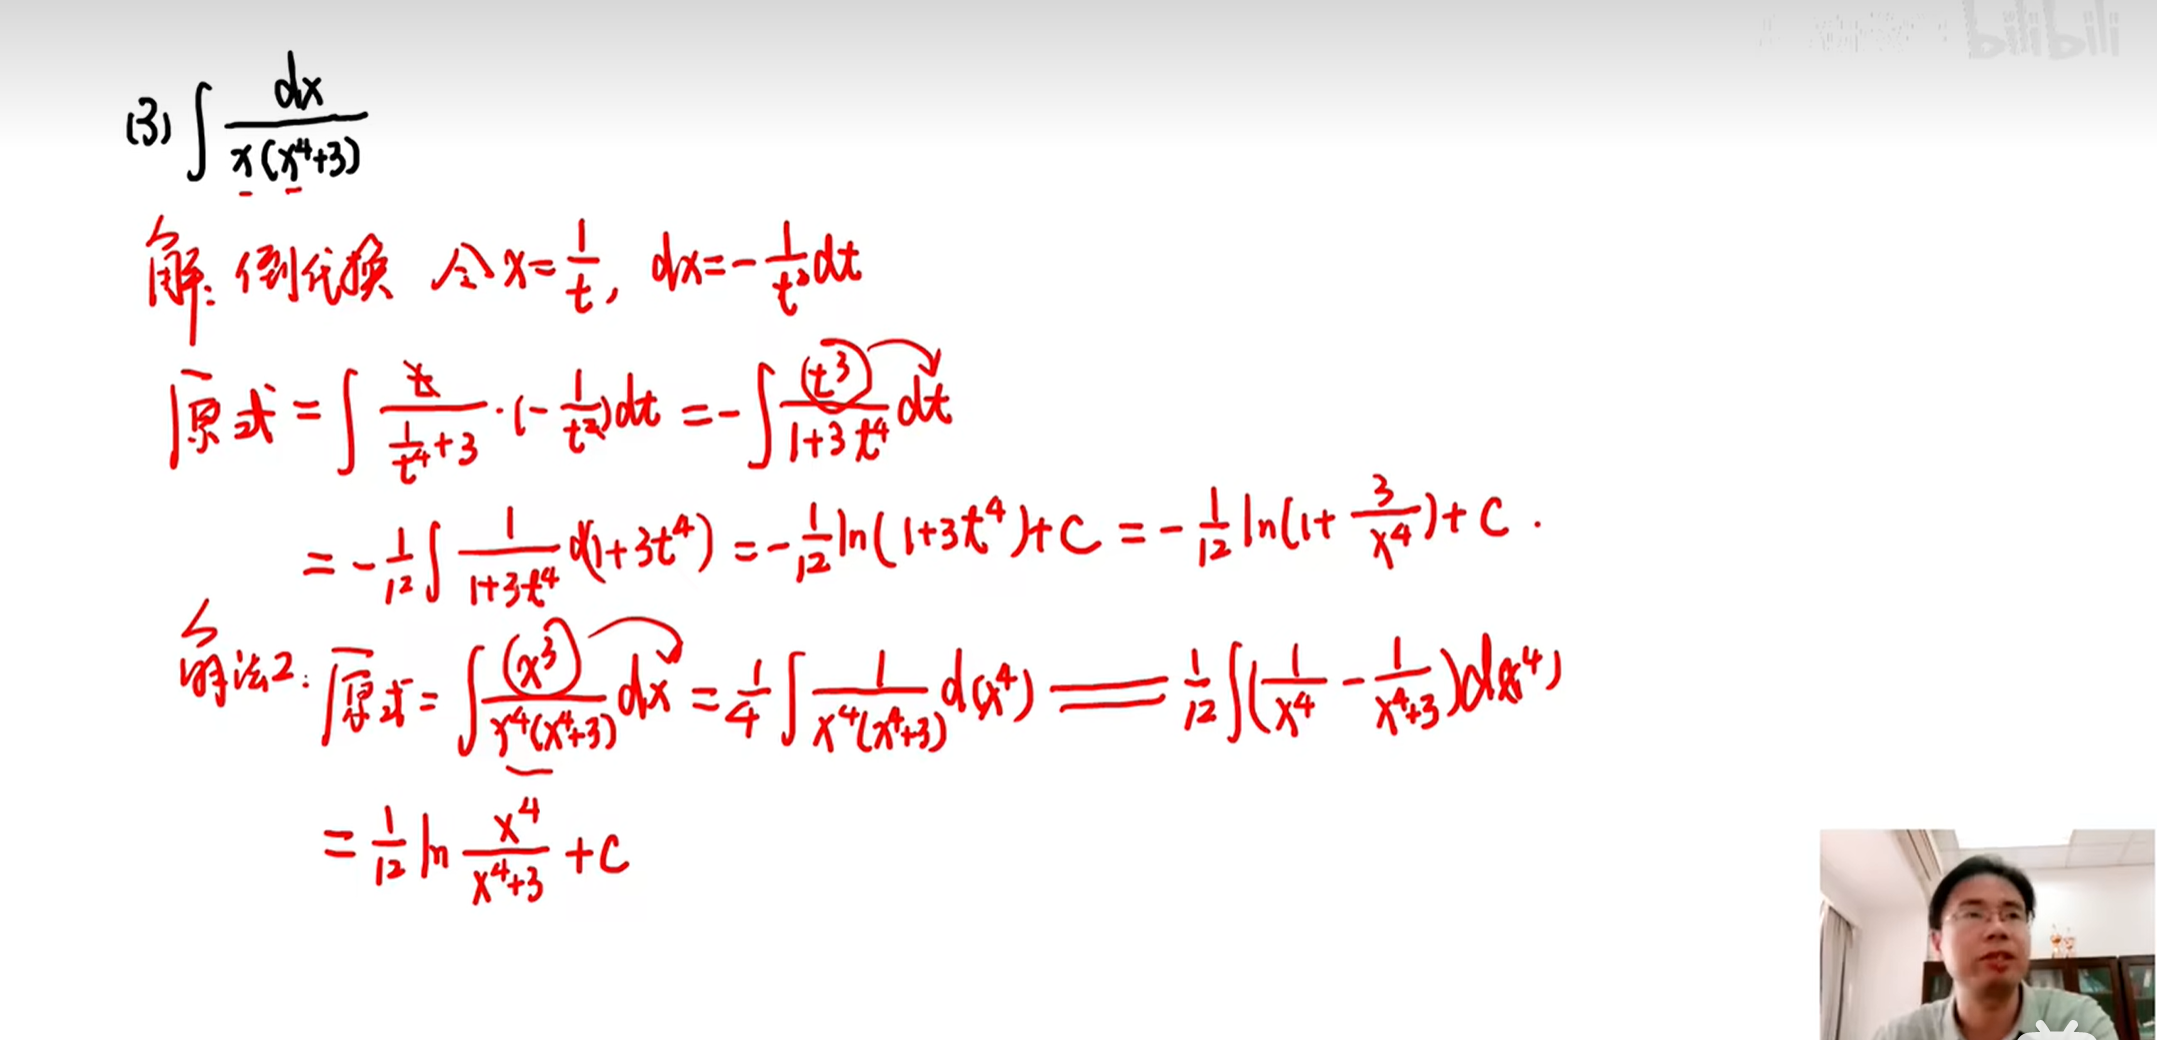 bilibili
(3) ∫ dx / x(x⁴+3)
解: 倒代换 令 x = 1/t, dx = -1/t² dt
原式 = ∫ t / (1/t⁴ + 3) · (-1/t²) dt = -∫ t³ / (1+3t⁴) dt
= -1/12 ∫ 1/(1+3t⁴) d(1+3t⁴) = -1/12 ln(1+3t⁴)+C = -1/12 ln(1+ 3/x⁴)+C.
解法2: 原式 = ∫ x³ / x⁴(x⁴+3) dx = 1/4 ∫ 1 / x⁴(x⁴+3) d(x⁴) = 1/12 ∫ (1/x⁴ - 1/(x⁴+3)) d(x⁴)
= 1/12 ln x⁴/(x⁴+3) + C